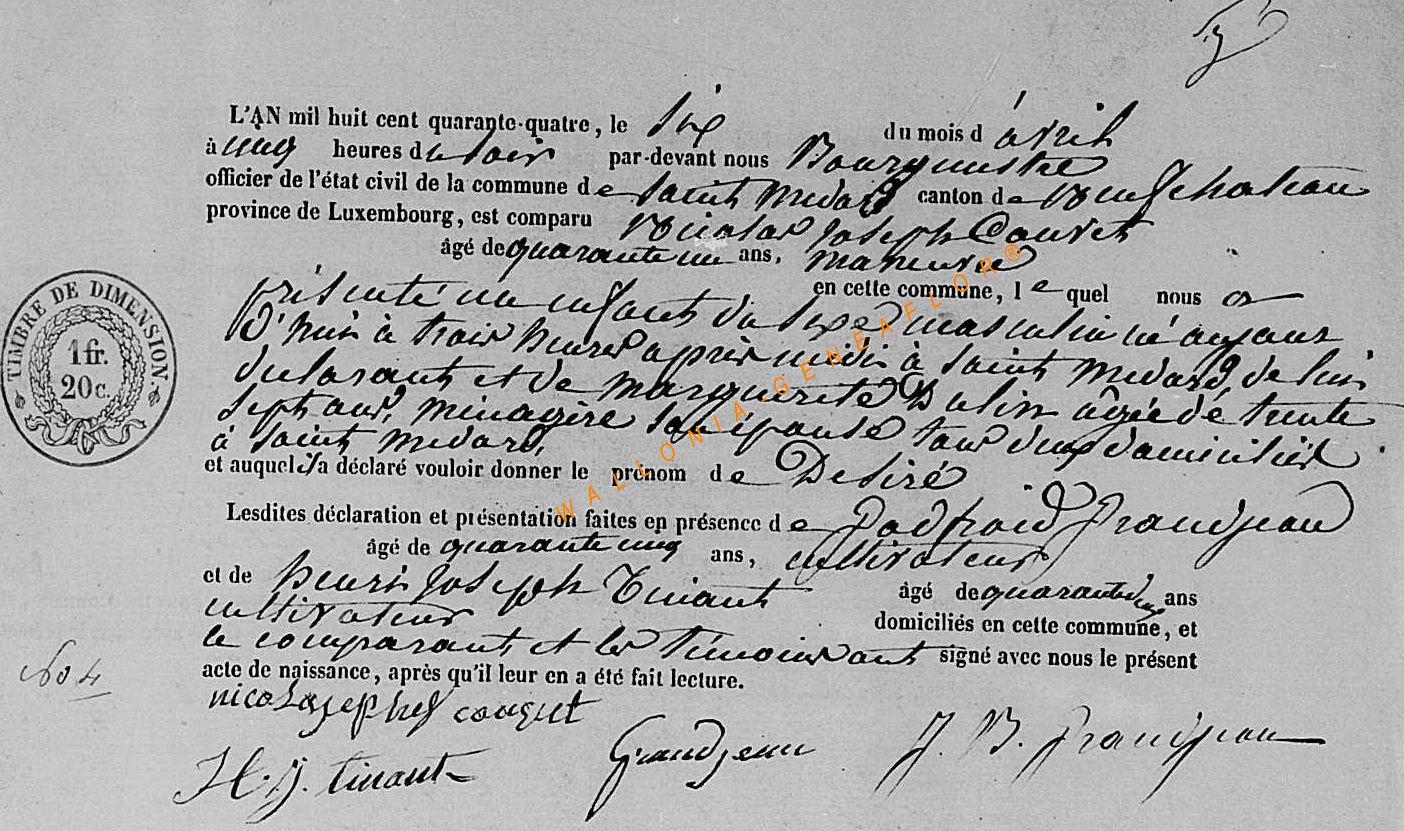 L'AN mil huit cent quarante-quatre, le Six du mois d'avril
à cinq heures du Soir par-devant nous Bourgmestre
officier de l'état civil de la commune de Saint Medard canton de Neufchateau
province de Luxembourg, est comparu Nicolas Joseph
âgé de quarante un ans, manœuvre
en cette commune, lequel nous a
présenté un enfant du Sexe masculin né aujour
d'huis à trois heures après midi à Saint Medard, de lui
declarant et de Marguerite âgée de trente
Sept ans, ménagère son épouse tous deux domiciliés
à Saint Medard,
et auquel il a déclaré vouloir donner le prénom de Desiré
Lesdites déclaration et présentation faites en présence de Grandjean
âgé de quarante cinq ans, cultivateur
et de henri Joseph Tinant âgé de quarante deux ans
cultivateur domiciliés en cette commune, et
le comparant et les témoins ont signé avec nous le présent
acte de naissance, après qu'il leur en a été fait lecture.
H. J. tinant Grandjean J. B. Grandjean
N° 4
TIMBRE DE DIMENSION.
1 fr.
20 c.
WALLONIA GENEAFLOR®